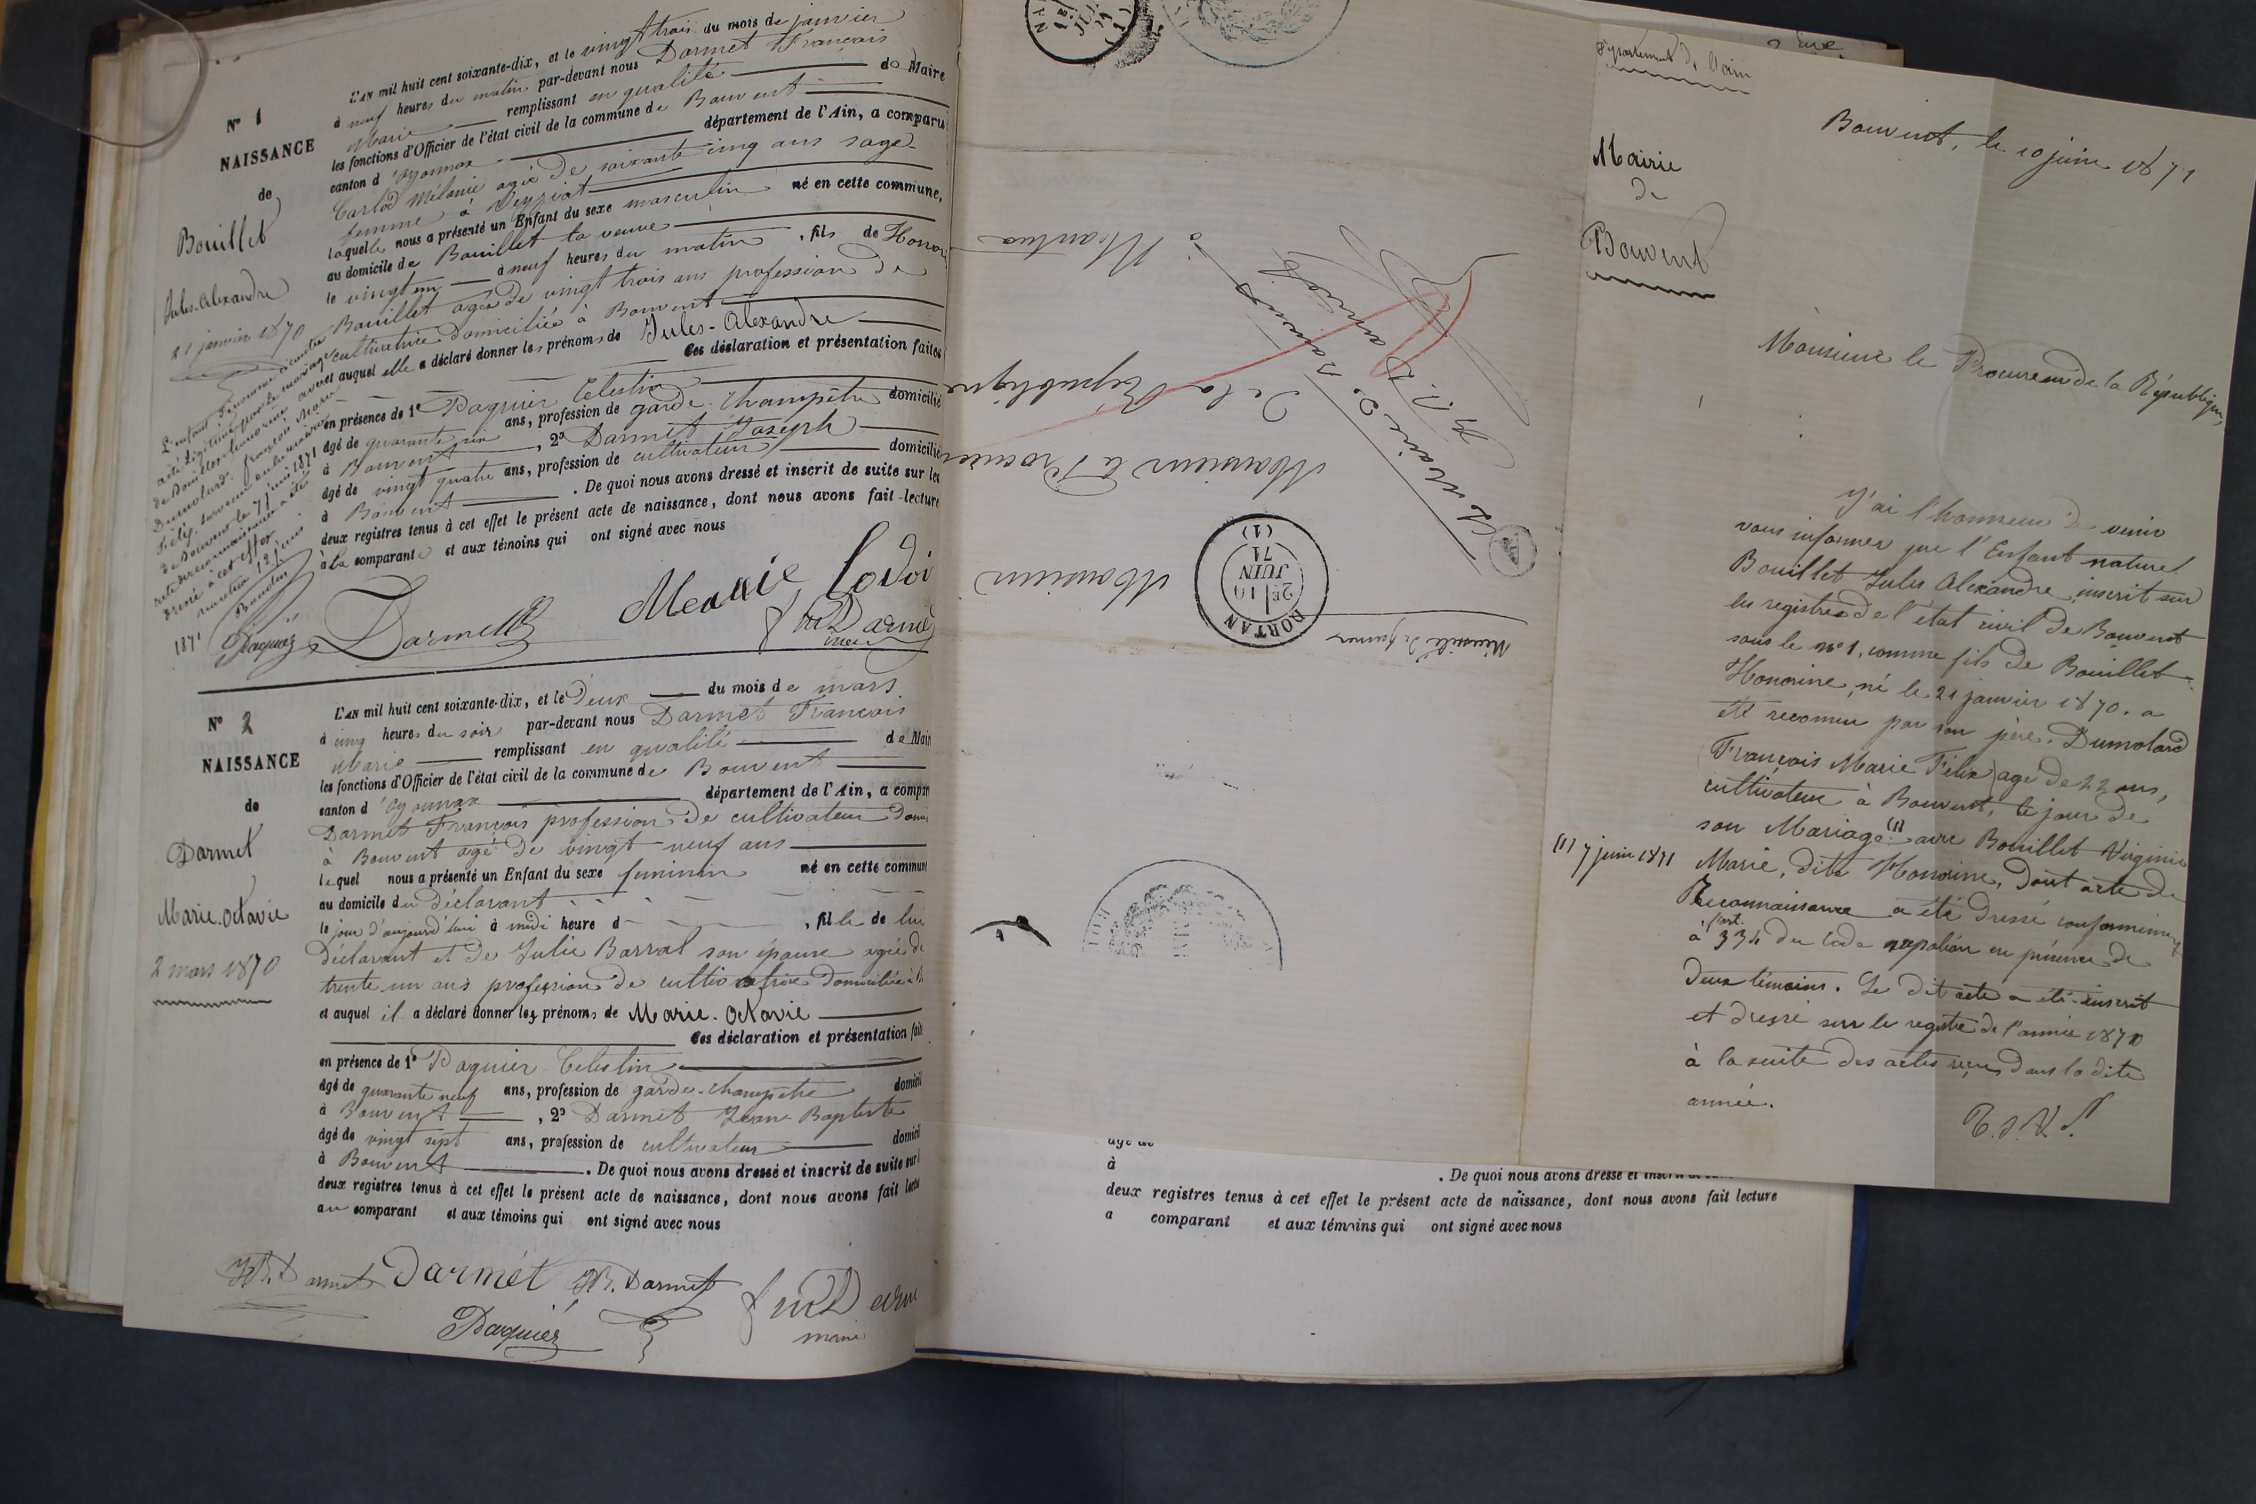 N° 1
NAISSANCE
de
Bouillet
Jules-Alexandre
21 janvier 1870
L'AN mil huit cent soixante-dix, et le vingt trois du mois de janvier
à neuf heures du matin par-devant nous Darmet François
Marie remplissant en qualité de Maire
les fonctions d'Officier de l'état civil de la commune de Bouvent
canton d'Oyonnax département de l'Ain, a comparu
Carlod Mélanie agée de soixante cinq ans sage
femme à Veyziat
laquelle nous a présenté un Enfant du sexe masculin né en cette commune,
au domicile de Bouillet la veuve
le vingt un à neuf heures du matin, fils de Honori
Bouillet agée de vingt trois ans profession de
cultivatrice domiciliée à Bouvent
et auquel elle a déclaré donner les prénoms de Jules-Alexandre
Ces déclaration et présentation faites
en présence de 1° Paquier Celestin
âgé de quarante ans, profession de garde-champêtre domicilié
à Bouvent, 2° Darmet Joseph
âgé de vingt quatre ans, profession de cultivateur domicilié
à Bouvent. De quoi nous avons dressé et inscrit de suite sur les
deux registres tenus à cet effet le présent acte de naissance, dont nous avons fait lecture
à la comparante et aux témoins qui ont signé avec nous
L'enfant
été légitimé par le mariage
de Bouillet
Dumolard françois Marie
Félix
de Bouvent le 7 juin 1871
acte de reconnaissance a été
dressé à cet effet
12 juin
1871
Paquier Darmet
N° 2
NAISSANCE
de
Darmet
Marie-Octavie
2 mars 1870
L'AN mil huit cent soixante-dix, et le deux du mois de mars
à cinq heures du soir par-devant nous Darmet François
Marie remplissant en qualité de Mair
les fonctions d'Officier de l'état civil de la commune de Bouvent
canton d'Oyonnax département de l'Ain, a compar
Darmet François profession de cultivateur domi
à Bouvent agé de vingt-neuf ans
lequel nous a présenté un Enfant du sexe feminin né en cette commun
au domicile du déclarant
le jour d'aujourd'hui à midi heure d, fille de lui
déclarant et de Julie Barral son épouse agée de
trente un ans profession de cultivatrice domiciliée à
et auquel il a déclaré donner les prénoms de Marie-Octavie
Ces déclaration et présentation fait
en présence de 1° Paquier Celestin
âgé de quarante neuf ans, profession de garde-champêtre domicil
à Bouvent, 2° Darmet Jean Baptiste
âgé de vingt sept ans, profession de cultivateur domicil
à Bouvent. De quoi nous avons dressé et inscrit de suite sur l
deux registres tenus à cet effet le présent acte de naissance, dont nous avons fait lectu
au comparant et aux témoins qui ont signé avec nous
Darmet Darmet JB. Darmet
Paquier
maire
Monsieur
Monsieur le Procureur
de la République
à Nantua
Nécessité de fermer
DORTAN
2E
10
JUIN
71
(1)
Département de l'Ain
Mairie
de
Bouvent
Bouvent, le 10 juin 1871
Monsieur le Procureur de la République,
J'ai l'honneur de venir
vous informer que l'Enfant naturel
Bouillet Jules Alexandre, inscrit sur
les registres de l'état civil de Bouvent
sous le n° 1, comme fils de Bouillet
Honorine, né le 21 janvier 1870. a
été reconnu par son père. Dumolard
(François Marie Félix) agé de 22 ans,
cultivateur à Bouvent, le jour de
son Mariage (1) avec Bouillet Virginie
(1) 7 juin 1871
Marie, dite Honorine, dont acte de
Reconnaissance a été dressé conformement
à l'art. 334 du Code napoléon en présence de
deux témoins. Le dit acte a été inscrit
et dressé sur le registre de l'année 1870
à la suite des actes reçus dans la dite
année.
T.S.V.P.
âgé de
à. De quoi nous avons dressé et inscrit
deux registres tenus à cet effet le présent acte de naissance, dont nous avons fait lecture
a comparant et aux témoins qui ont signé avec nous